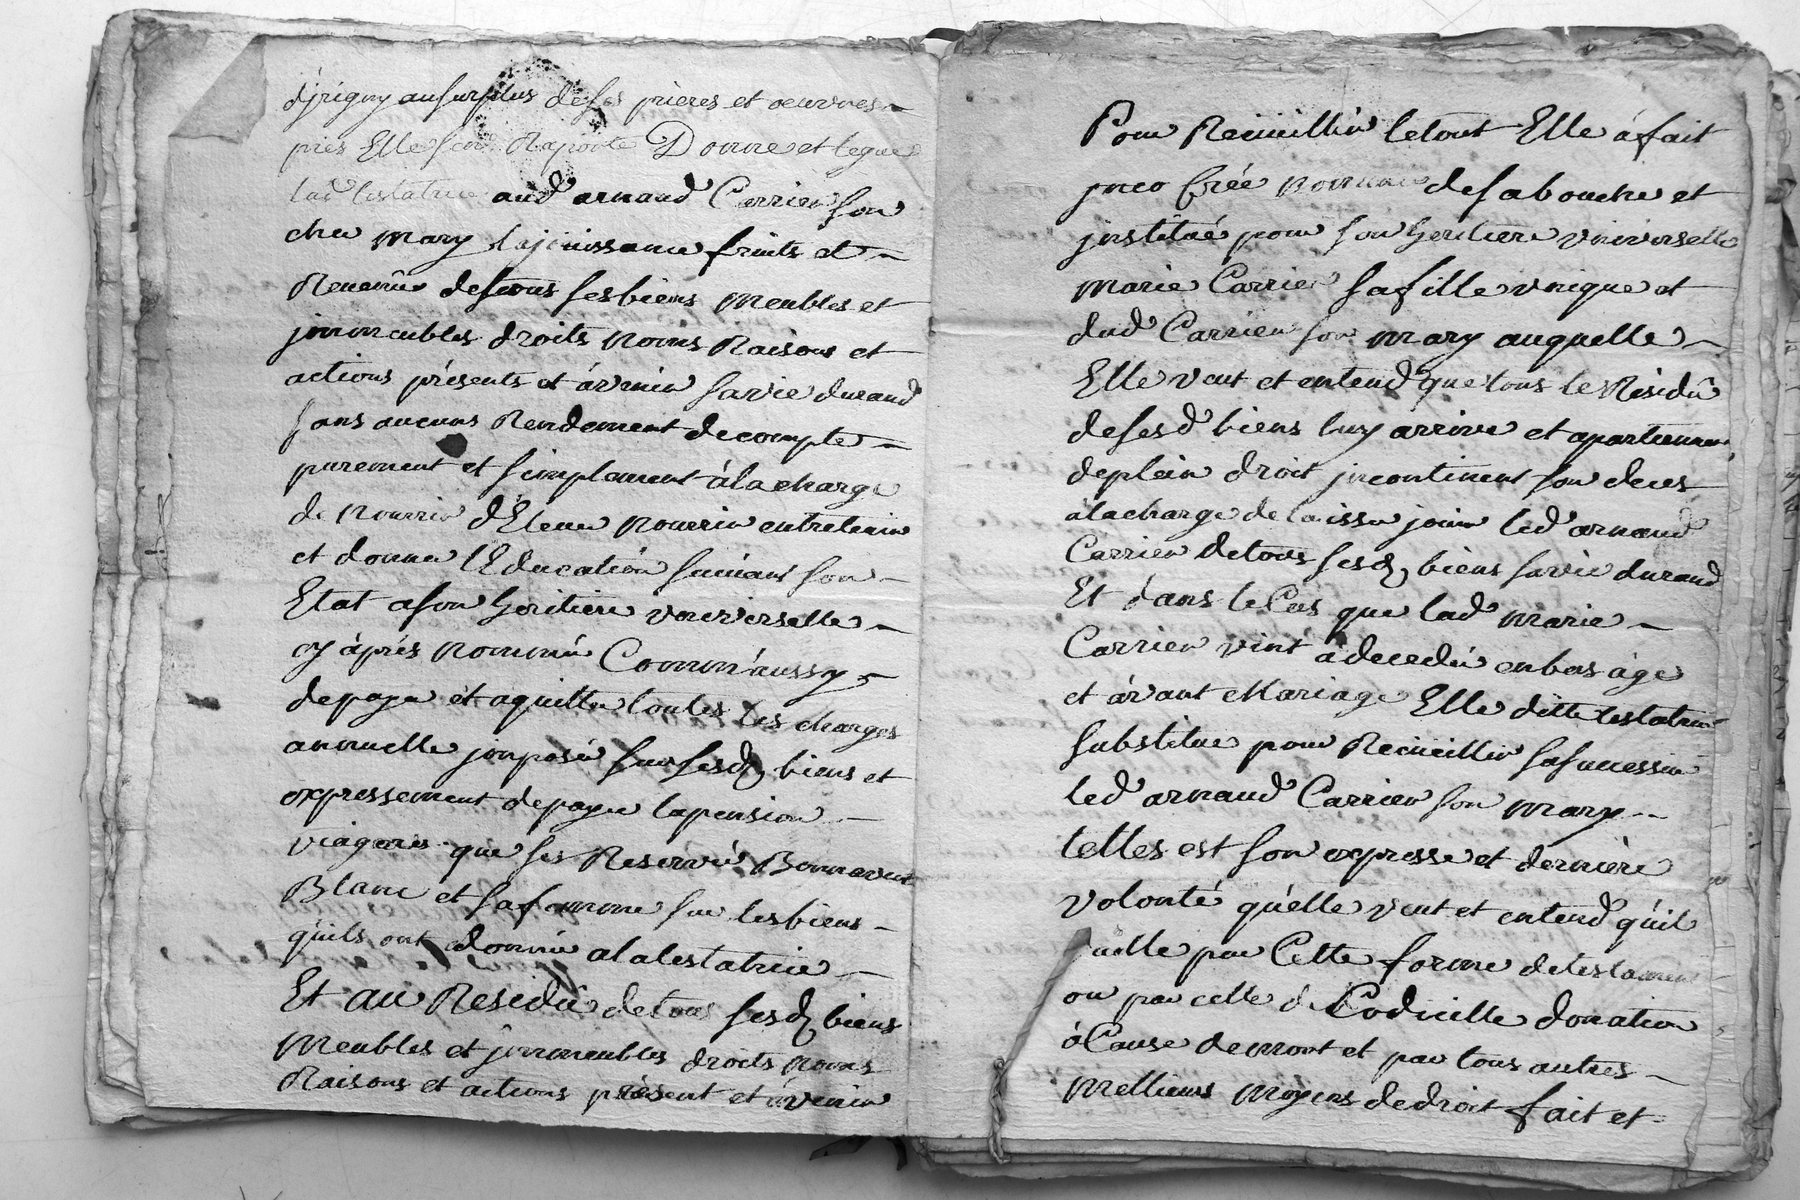 d'jrigny ausurplus deses prieres et oeuvres
pies Elle sen Raporte Donne et legue
lad testatrice aud arnaud Carrier son
cher mary lajouissance fruits et
Revenûs detous ses biens Meubles et
jmmeubles droits Noms Raisons et
actions présents et avenir savie durand
sans aucuns Rendement decompte
purement et simplement àla charge
de Nourrir dEleuer Nourrir entretenir
et donner lEducation suiuant son
Etat ason heritiere vniverselle
cy àprés Nommée Comm'aussy
depayer et aquitter toutes les charges
annuelle jmposée sur sesd biens et
expressement depayer lapension
viagere que ses Reservée Bonnavent
Blanc et safamme sur lesbiens
quils ont donnée alatestatrice
Et au Residû detous sesd biens
Meubles et jmmeubles droits Noms
Raisons et actions présent et àvenir
Pour Recüeillir letout Elle áfait
jnco Créé Nommé desabouche et
jnstitué pour son heritiere vniverselle
Marie Carrier safille vnique et
dud Carrier son mary auquelle
Elle veut et entend que tous le Residû
desesd biens luy arrive et apartienne
deplein droit jncontinent son deces
àlacharge delaisser jouir led arnaud
Carrier detous sesd biens savie durand
Et dans leCas que lad Marie
Carrier vint àdecedér enbas àge
et àvant Mariage Elle ditte testatrice
substitue pour Recüeillir sasuccession
led arnaud Carrier son mary
telles est son expresse et derniére
volonté qu'elle veut et entend quil
vaille par Cette forme detestament
ou par celle de Codicille donation
áCause demort et par tous autres
Mellieurs Moyens dedroit fait et